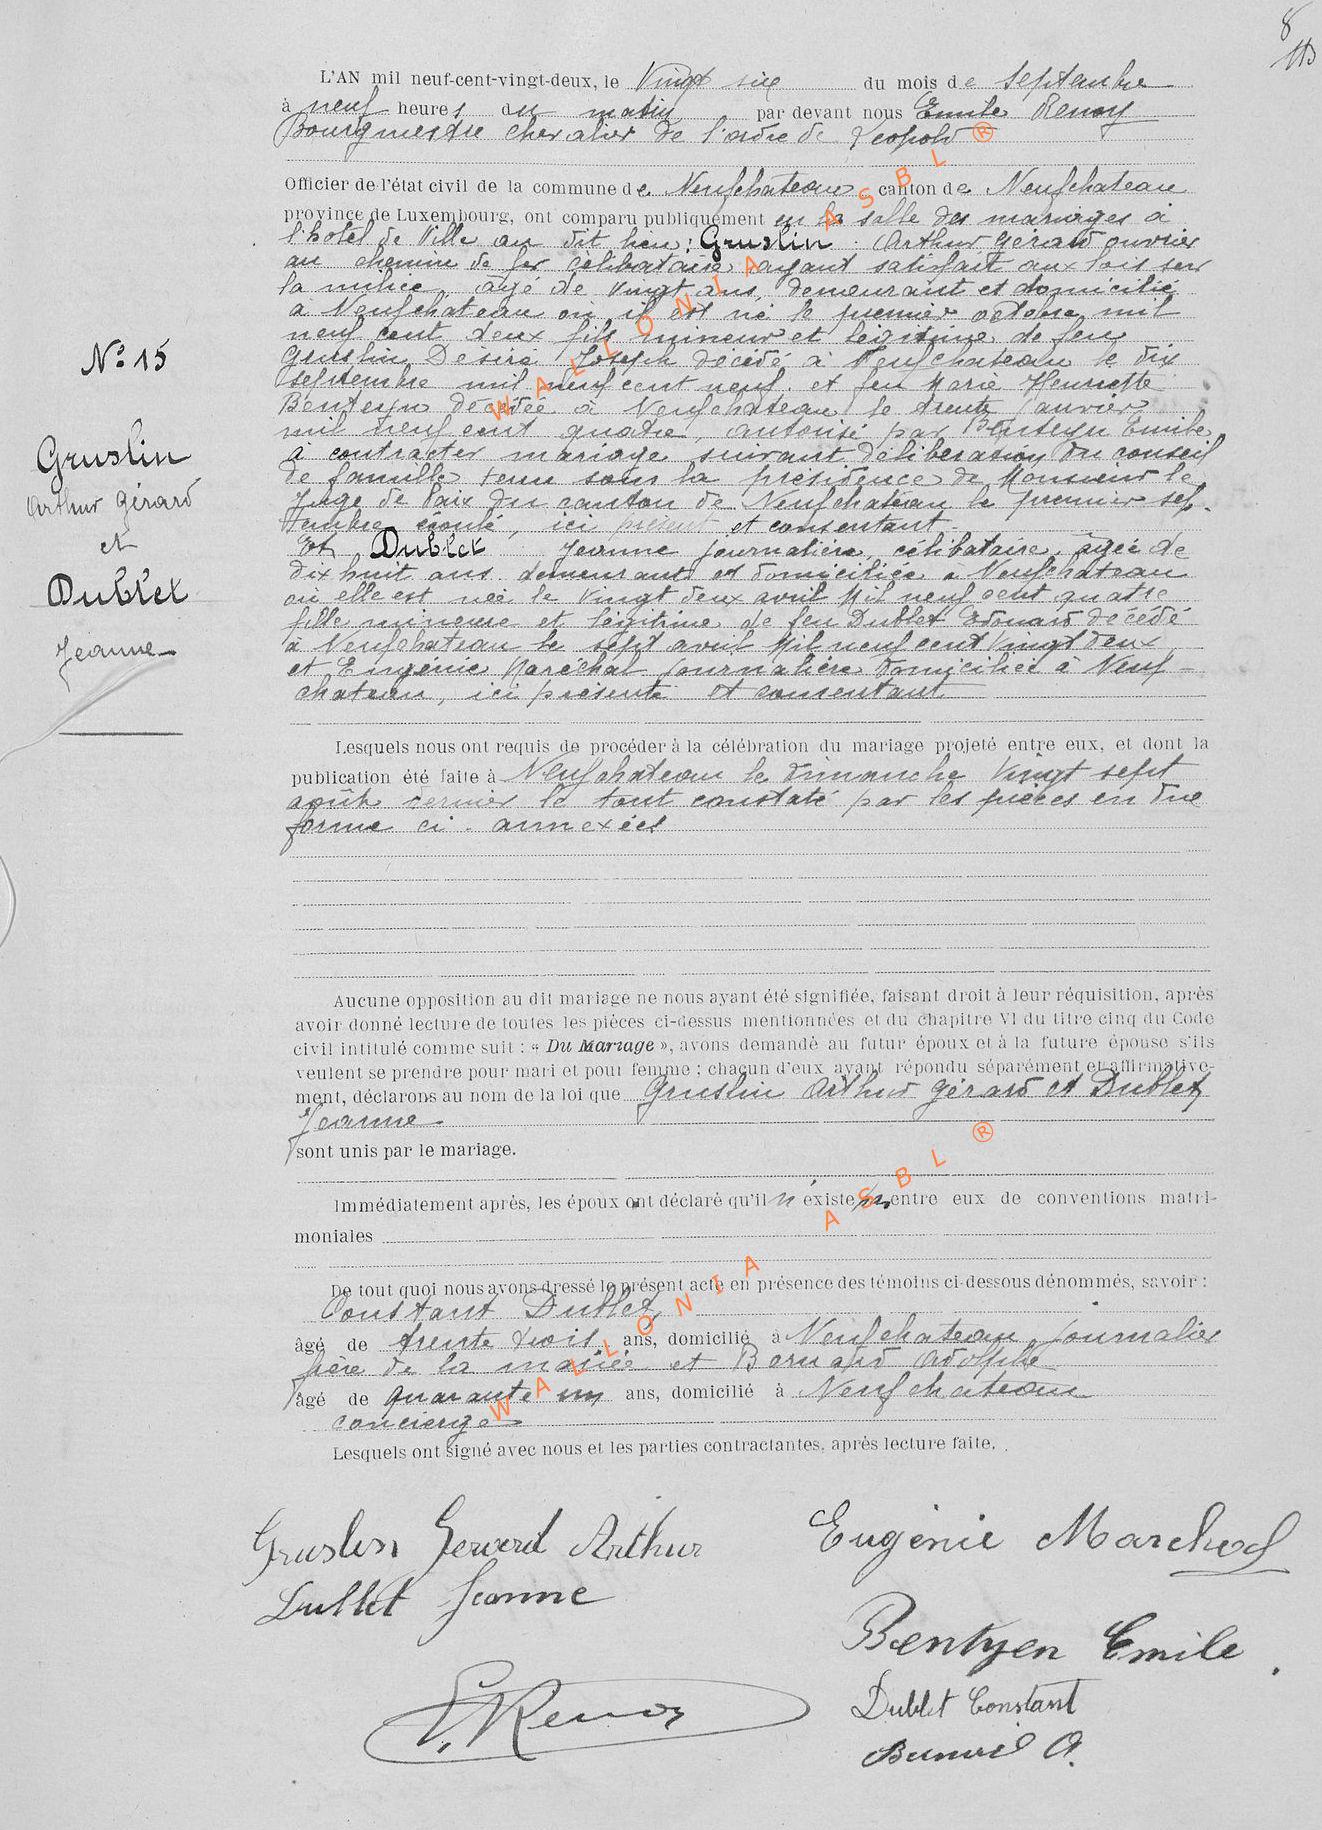 8
L'AN mil neuf-cent-vingt-deux, le Vingt six du mois de Septembre
à neuf heures du matin par devant nous Emile Renoy
Bourgmestre chevalier de l'ordre de Léopold
Officier de l'état civil de la commune de Neufchateau canton de Neufchateau
province de Luxembourg, ont comparu publiquement en la salle des mariages à
l'hotel de Ville au dit lieu : Gruslin Arthur Gérard ouvrier
au chemin de fer célibataire ayant satisfait aux lois sur
la milice, agé de vingt ans, demeurant et domicilié
à Neufchateau où il est né le premier octobre mil
neuf cent deux fils mineur et légitime de feu
Gruslin Désiré Joseph décédé à Neufchateau le dix
septembre mil neuf cent neuf. et feu Marie Henriette
décédée à Neufchateau le trente janvier
mil neuf cent quatre, autorisé par Emile
à contracter mariage suivant délibération du conseil
de famille tenu sous la présidence de Monsieur le
Juge de Paix du canton de Neufchateau le premier sep-
tembre écoulé, ici présent et consentant
Et Dublet Jeanne journalière, célibataire, agée de
dix huit ans demeurant et domiciliée à Neufchateau
où elle est née le vingt deux avril Mil neuf cent quatre
fille mineure et légitime de feu Dublet Edouard décédé
à Neufchateau le sept avril Mil neuf cent vingt deux
et Eugénie Maréchal journalière domiciliée à Neuf-
chateau, ici présente et consentant
N° 15
Gruslin
Arthur Gérard
et
Dublet
Jeanne
Lesquels nous ont requis de procéder à la célébration du mariage projeté entre eux, et dont la
publication été faite à Neufchateau le dimanche vingt sept
août dernier le tout constaté par les pièces en due
forme ci-annexées
Aucune opposition au dit mariage ne nous ayant été signifiée, faisant droit à leur réquisition, après
avoir donné lecture de toutes les pièces ci-dessus mentionnées et du chapitre VI du titre cinq du Code
civil intitulé comme suit : « Du Mariage », avons demandé au futur époux et à la future épouse s'ils
veulent se prendre pour mari et pour femme ; chacun d'eux ayant répondu séparément et affirmative-
ment, déclarons au nom de la loi que Gruslin Arthur Gérard et Dublet
Jeanne
sont unis par le mariage.
Immédiatement après, les époux ont déclaré qu'il n'existe entre eux de conventions matri-
moniales
De tout quoi nous avons dressé le présent acte en présence des témoins ci-dessous dénommés, savoir :
Constant Dublet
âgé de trente trois ans, domicilié à Neufchateau journalier
frère de la mariée et Adolphe
âgé de quarante un ans, domicilié à Neufchateau
concierge
Lesquels ont signé avec nous et les parties contractantes, après lecture faite.
Gruslin Gerard Arthur
Dublet Jeanne
Eugénie Marechal
Bentyen Emile
E. Renoy
Dublet Constant
WALLONIA ASBL ®
WALLONIA ASBL ®